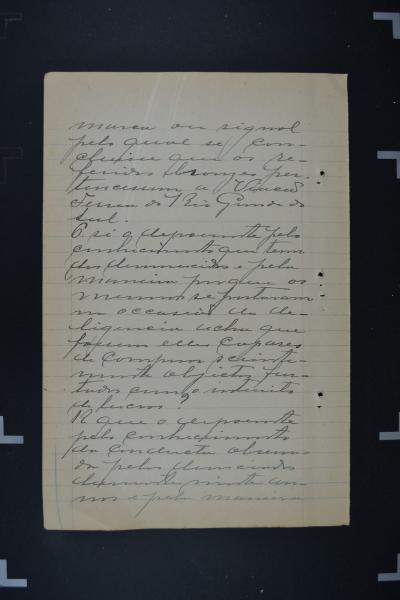 marca ou signal
pelo qual se con-
cluisse que os re-
feridos bronzes per-
tencessem a Viação
Ferrea do Rio Grande do
Sul.
E si o depoente pelo
conhecimento que tem
dos denunciados e pela
maneira porque os
mesmos se portaram
na occasião da de-
ligencia acha que
fossem elles capazes
de comprar sciente-
mente objectos fur-
tados com o intuito
de lucros?
R que o depoente
pelo conhecimento
da conducta observa-
da pelos denunciados
durante vinte an-
nos e pela maneira